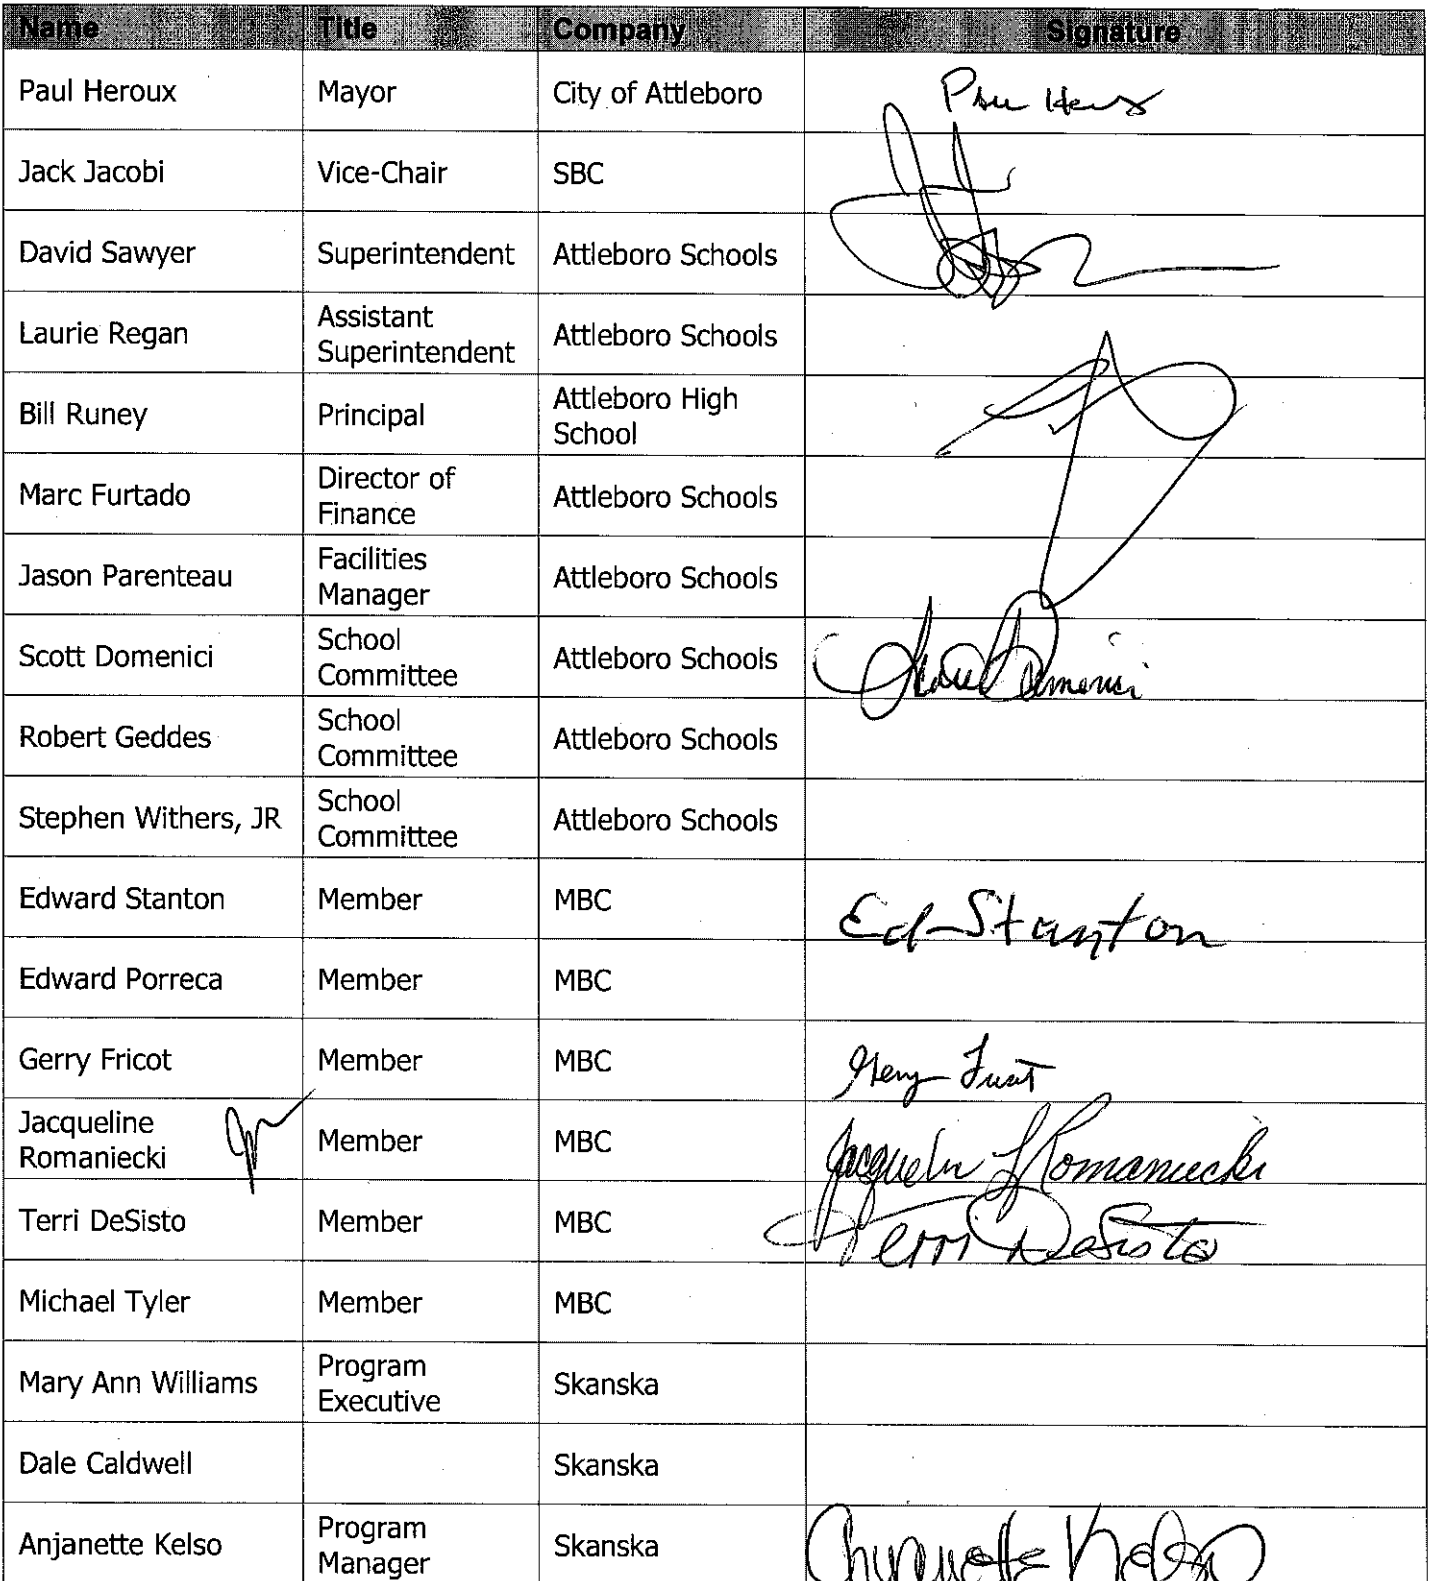 Name Title Company Signature
Paul Heroux Mayor City of Attleboro Paul Heroux
Jack Jacobi Vice-Chair SBC
David Sawyer Superintendent Attleboro Schools
Laurie Regan Assistant Superintendent Attleboro Schools
Bill Runey Principal Attleboro High School
Marc Furtado Director of Finance Attleboro Schools
Jason Parenteau Facilities Manager Attleboro Schools
Scott Domenici School Committee Attleboro Schools Scott Domenici
Robert Geddes School Committee Attleboro Schools
Stephen Withers, JR School Committee Attleboro Schools
Edward Stanton Member MBC Ed Stanton
Edward Porreca Member MBC
Gerry Fricot Member MBC Gerry Fricot
Jacqueline Romaniecki Member MBC Jacquelin L Romaniecki
Terri DeSisto Member MBC Terri DeSisto
Michael Tyler Member MBC
Mary Ann Williams Program Executive Skanska
Dale Caldwell Skanska
Anjanette Kelso Program Manager Skanska Anjanette Kelso